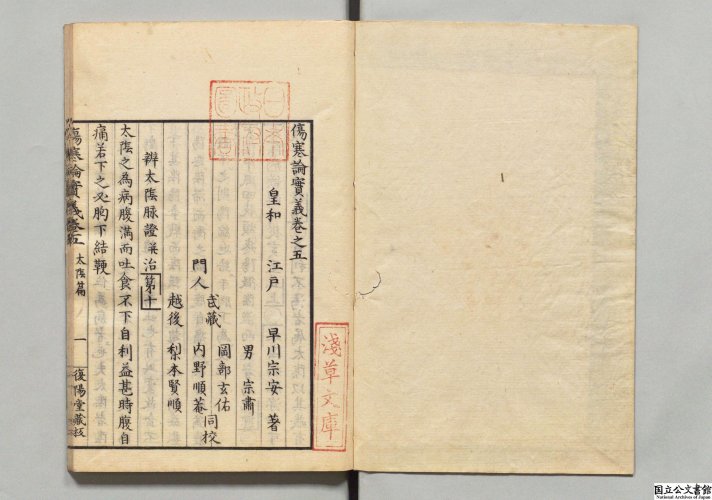 傷寒論實義卷之五
皇和 江戸 早川宗安 著
男 宗肅
武藏 岡部玄佑
門人 内野順菴 同校
越後 梨本賢順
辨太陰脉證并治第十
太陰之為病腹滿而吐食不下自利益甚時腹自
痛若下之必胸下結鞕
傷寒論實義卷五 太陰篇 一 復陽堂藏板
日本
淺草文庫
国立公文書館
National Archives of Japan